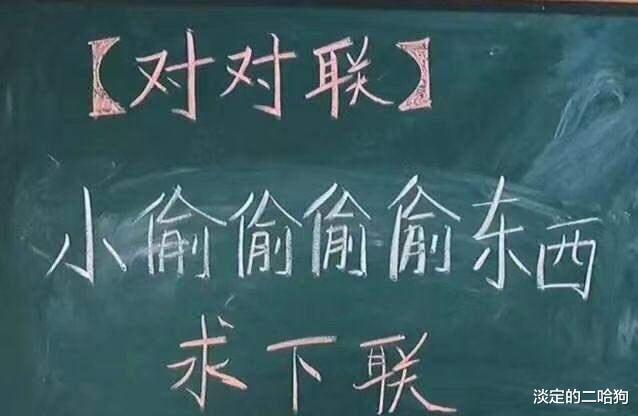 【对对联】
小偷偷偷偷东西
求下联
淡定的二哈狗